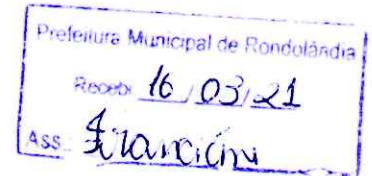 Prefeitura Municipal de Rondolândia
Recebi 16 / 03 / 21
Ass.: